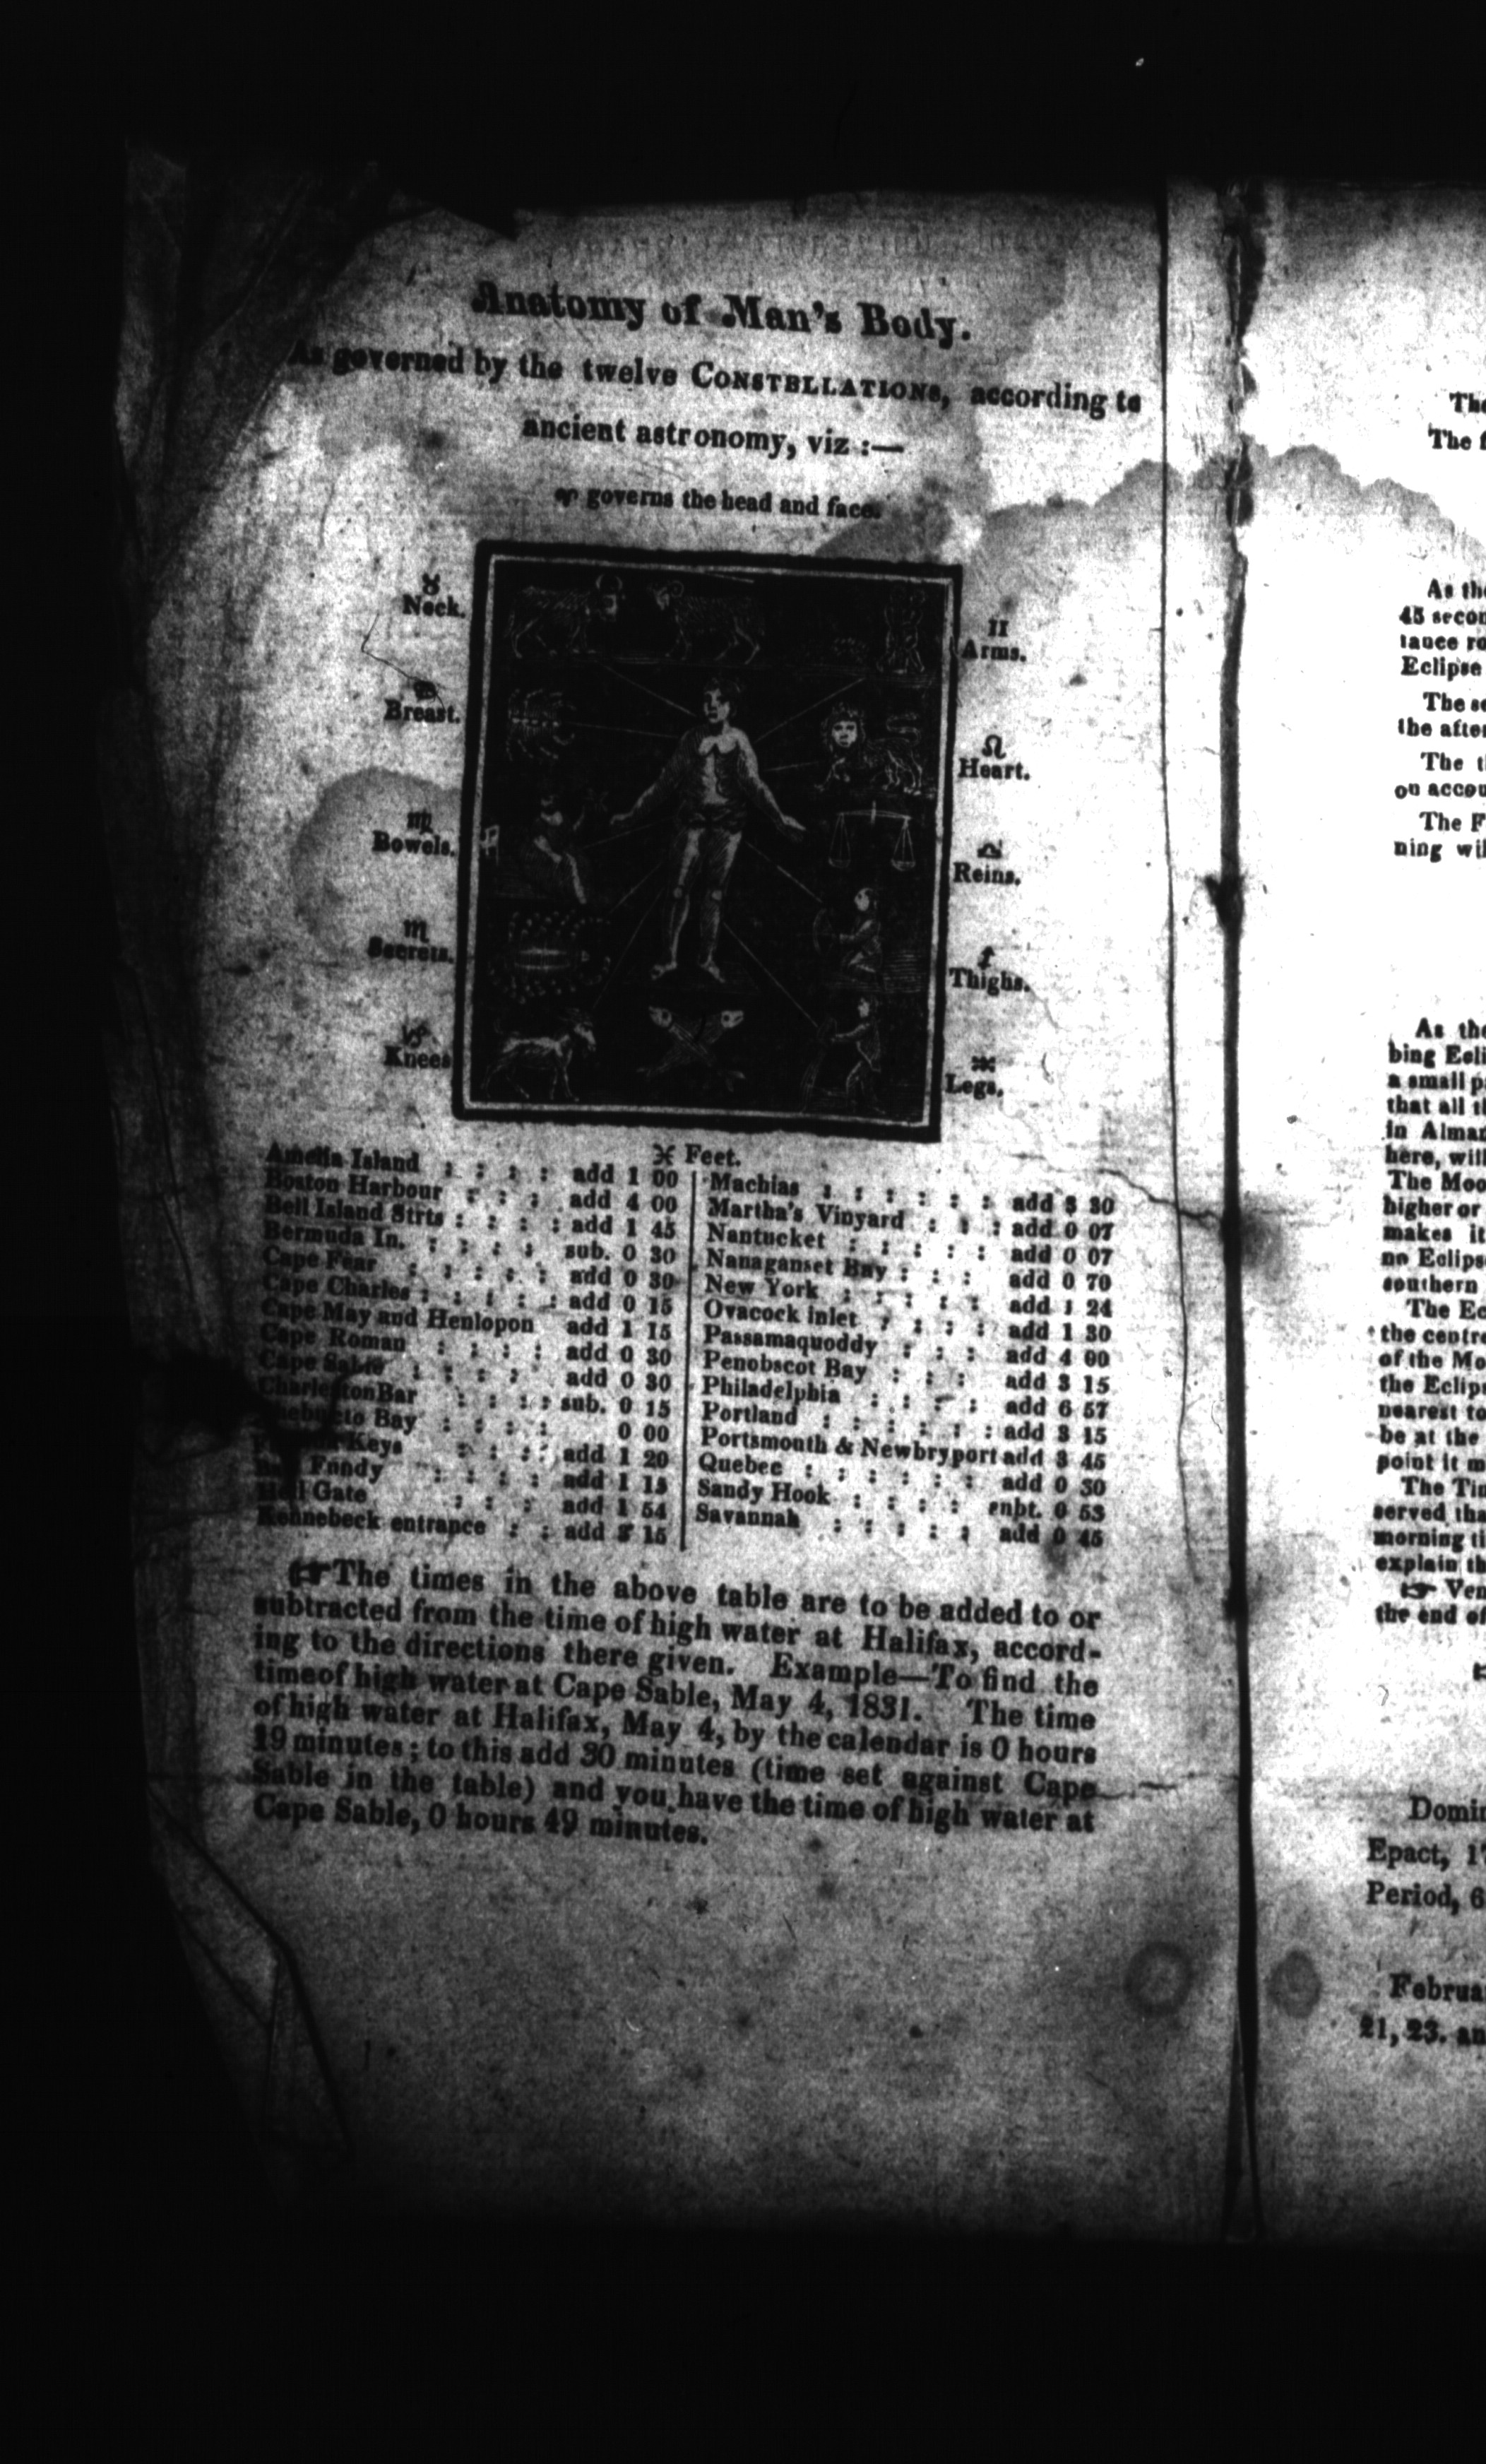 Anatomy of Man's Body.
As governed by the twelve CONSTELLATIONS, according to
ancient astronomy, viz :—
♈ governs the head and face.
♉
Neck.
♊
Arms.
♋
Breast.
♌
Heart.
♍
Bowels.
♎
Reins.
♏
Secrets.
♐
Thighs.
♑
Knees
♒
Legs.
♓ Feet.
Amelia Island : : : : add 1 00
Boston Harbour : : : add 4 00
Bell Island Strts : : : : add 1 45
Bermuda In. : : : : sub. 0 30
Cape Fear : : : : : add 0 30
Cape Charles : : : : : add 0 15
Cape May and Henlopon add 1 15
Cape Roman : : : : add 0 30
Cape Sable : : : : : add 0 30
CharlestonBar : : : : sub. 0 15
Bay : : : : 0 00
Keys : : : : add 1 20
Fundy : : : : add 1 15
Gate : : : add 1 54
Kennebeck entrance : : add 15
Machias : : : : : : add 3 30
Martha's Vinyard : : : add 0 07
Nantucket : : : : : add 0 07
Nanaganset Bay : : : add 0 70
New York : : : : : add 1 24
Ovacock inlet : : : : add 1 30
Passamaquoddy : : : add 4 00
Penobscot Bay : : : add 3 15
Philadelphia : : : : add 6 57
Portland : : : : : : add 3 15
Portsmouth & Newbryport add 3 45
Quebec : : : : : add 0 30
Sandy Hook : : : : 0 53
Savannah : : : : : add 0 45
☞The times in the above table are to be added to or
subtracted from the time of high water at Halifax, accord-
ing to the directions there given. Example—To find the
timeof high water at Cape Sable, May 4, 1831. The time
of high water at Halifax, May 4, by the calendar is 0 hours
19 minutes; to this add 30 minutes (time set against Cape
Sable in the table) and you have the time of high water at
Cape Sable, 0 hours 49 minutes.
The
The
As the
45
Eclipse
The
the
The
on
The
ning
As the
bing
a small
that all
in
here,
The
higher or
makes
no
southern
The
the centre
of the
the
nearest to
be at the
point it
The
served
morning
explain
☞
the end of
Epact,
Period,
21, 23.